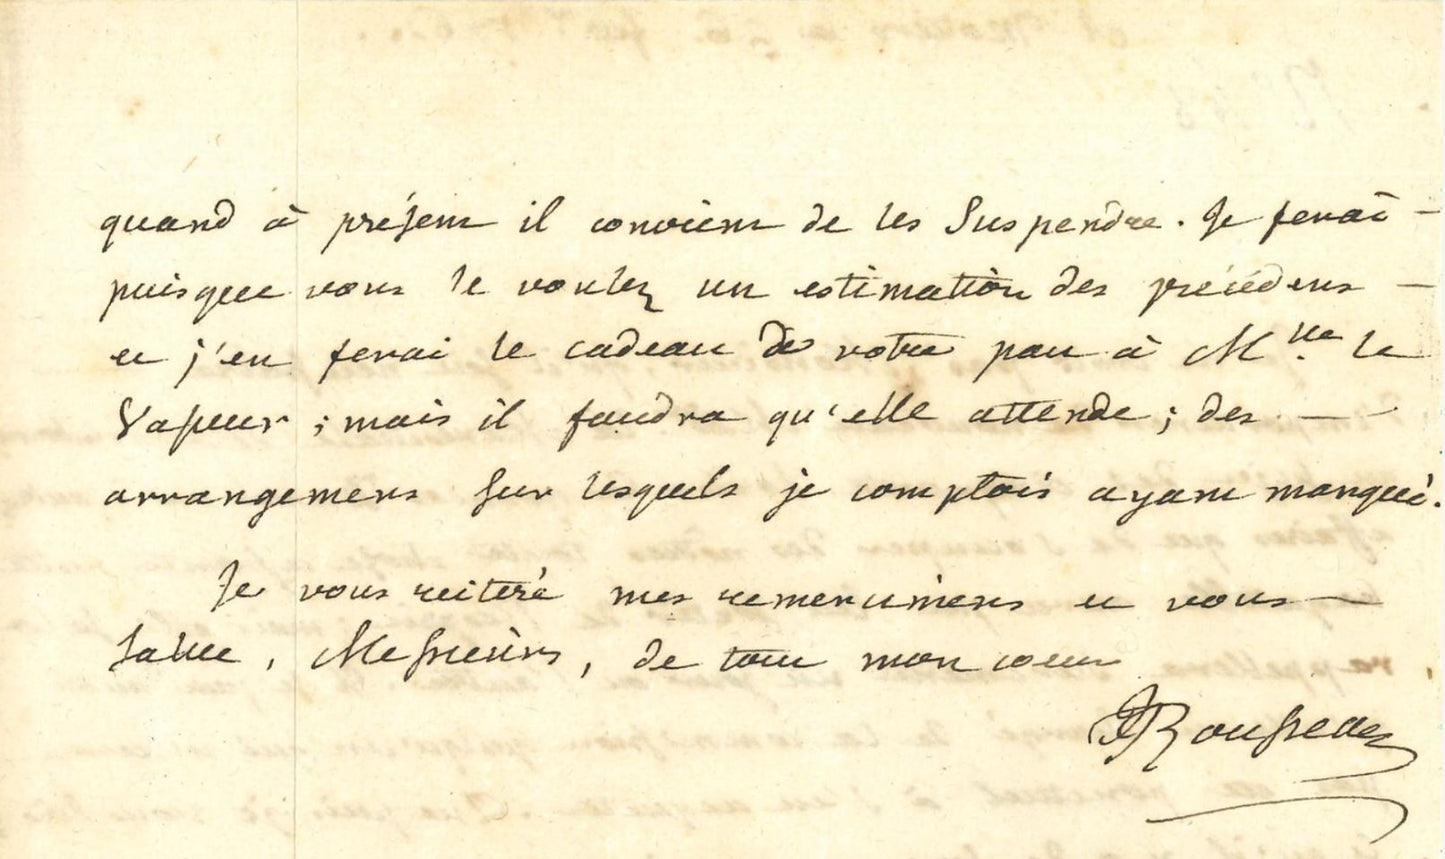 quand à présent il convient de les suspendre. Je ferai –
puisque vous le voulez un estimation des précédens –
et j'en ferai le cadeau de votre part à Mlle. le
Vasseur ; mais il faudra qu'elle attende ; des – –
arrangemens sur lesquels je comptois ayant manqué.
Je vous reitere mes remercimens et vous –
salue, Messieurs, de tout mon coeur
JJRousseau